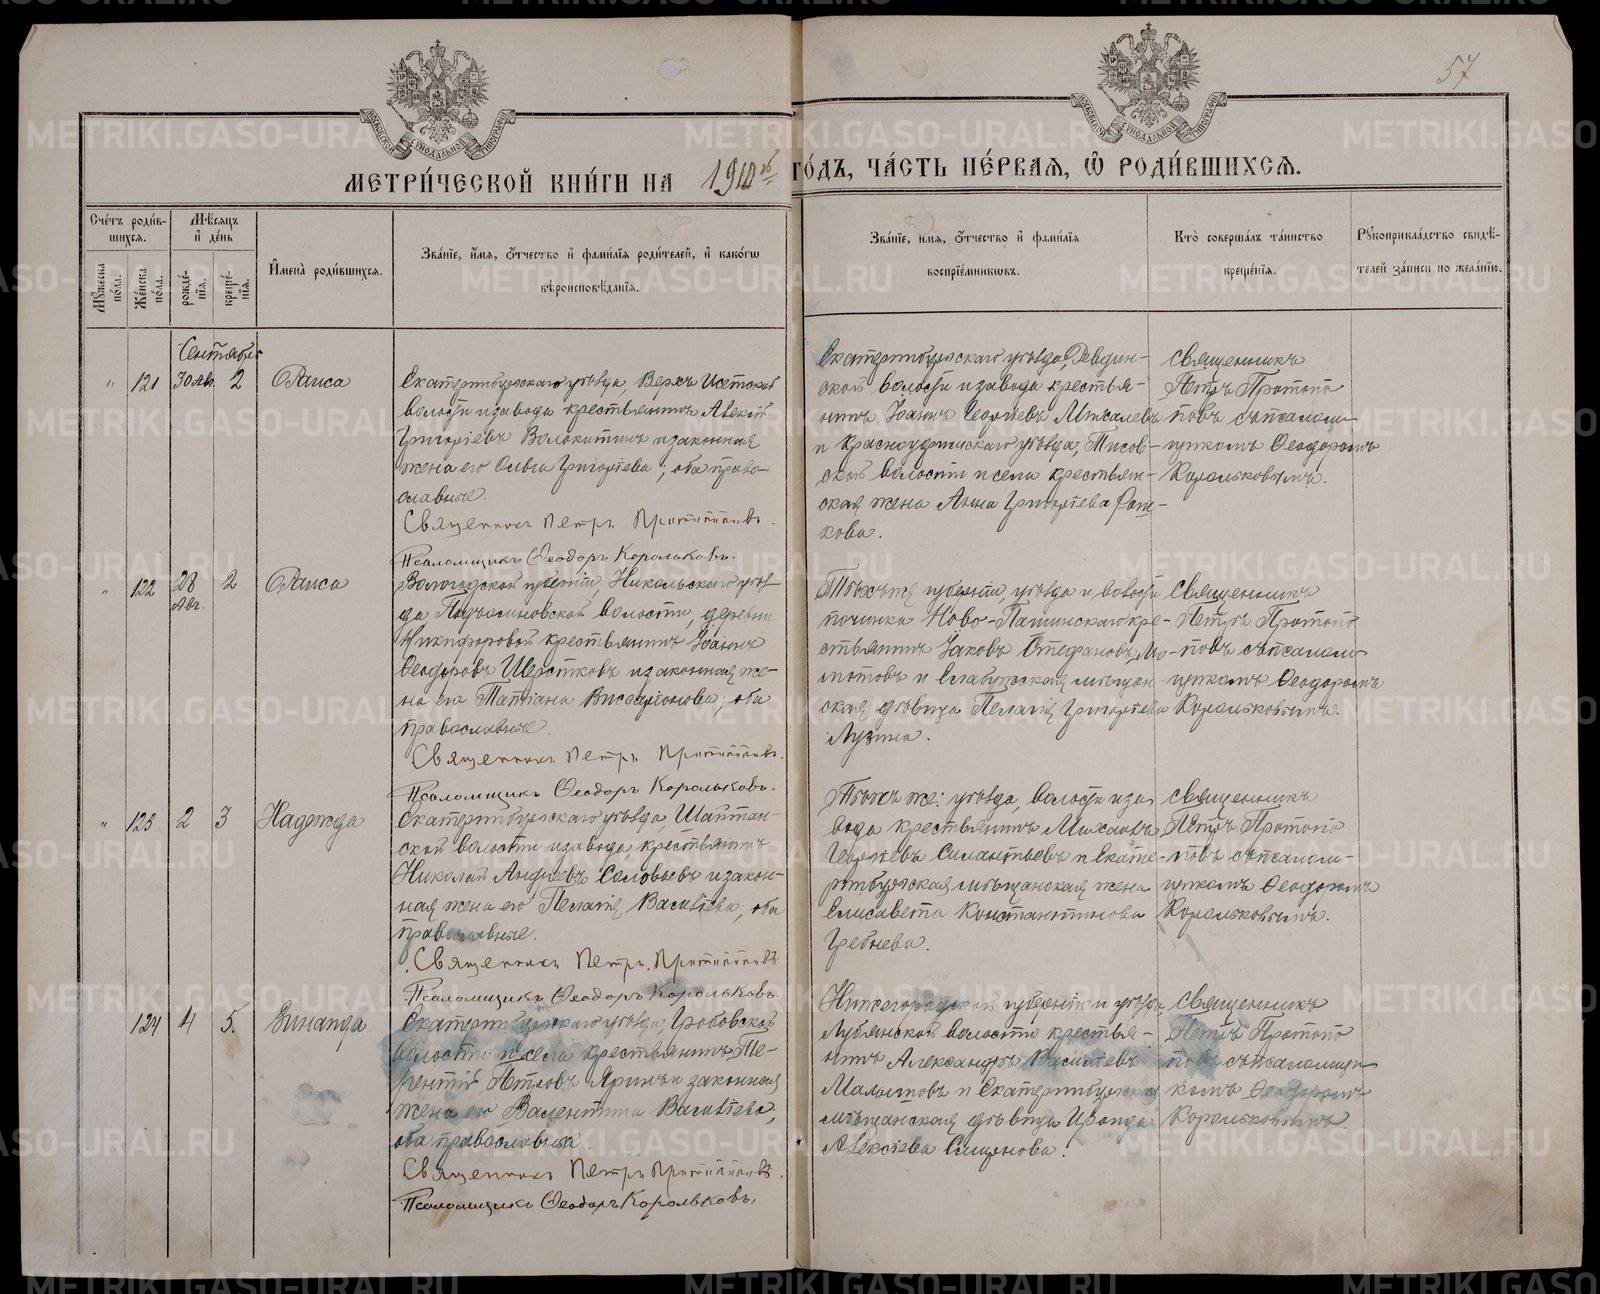 57
МЕТРИ́ЧЕСКОЙ КНИ́ГИ НА 1910 ГО́ДЪ, ЧА́СТЬ ПЕ́РВАЯ, Ѿ РОДИ́ВШИХСЯ.
Сче́тъ роди́в-
шихся.
Мꙋ́жеска по́ла.
Же́нска по́ла.
Мѣ́сяцъ
и҆ де́нь
рожде́-
нїѧ.
креще́-
нїѧ.
И҆мена̀ роди́вшихся.
Зва́нїе, и҆́мя, ѻ҆́тчество и҆ фами́лїя роди́телей, и҆ како́гѡ
вѣроисповѣ́данїя.
Зва́нїе, и҆́мя, ѻ҆́тчество и҆ фами́лїя
воспрїе́мниковъ.
Кто̀ соверша́лъ та́инство
креще́нїя.
Рꙋкоприкла́дство свидѣ́-
телей за́писи по жела́нїю.
Сентябрь
" 121 30 Ав. 2 Раиса
Екатеринбургскаго уѣзда, Верхъ Исетской
волости и завода крестьянинъ Алексѣй
Григорiевъ Волокитинъ и законная
жена его Ольга Григорiева; оба право-
славные.
Священникъ Петръ Протопоповъ.
Псаломщикъ Ѳеодоръ Корольковъ.
Екатеринбургскаго уѣзда, Ревдин-
ской волости и завода крестья-
нинъ Iоаннъ Георгiевъ
и Красноуфимскаго уѣзда, Тисов-
ской волости и села крестьян-
ская жена Анна Григорiева
кова.
Священникъ
Петръ Протопо
повъ съ псалом-
щикомъ Ѳеодоромъ
Корольковымъ.
" 122 28 Авг. 2 Раиса
Вологодской губернiи, Никольскаго уѣз-
да Подосиновской волости, деревни
Никифоровой крестьянинъ Iоаннъ
Ѳеодоровъ Шерстковъ и законная же-
на его Татiана Виссарiонова; оба
православные.
Священникъ Петръ Протопоповъ.
Псаломщикъ Ѳеодоръ Корольковъ.
губернiи, уѣзда и волости
починка Ново-Пашинскаго кре-
стьянинъ Iаковъ Стефановъ
и Елабужская мѣщан
ская дѣвица Пелагiя Григорiева
Лузина.
Священникъ
Петръ Протопо
повъ съ псалом
щикомъ Ѳеодоромъ
Корольковымъ.
" 123 2 3 Надежда
Екатеринбургскаго уѣзда, Шайтан-
ской волости и завода, крестьянинъ
Николай Андреевъ Соловьевъ и закон-
ная жена его Пелагiя Васильева; оба
православные.
Священникъ Петръ Протопоповъ
Псаломщикъ Ѳеодоръ Корольковъ.
Тѣхъ же: уѣзда, волости и за
вода крестьянинъ Михаилъ
Георгiевъ Силантьевъ и Екате-
ринбургская мѣщанская жена
Елисавета Константинова
Гребнева.
Священникъ
Петръ Протопо
повъ съ псалом-
щикомъ Ѳеодоромъ
Корольковымъ.
124 4 5. Зинаида
Екатеринбургскаго уѣзда, Гробовской
волости и села крестьянинъ Те-
рентiй Петровъ Яринъ и законная
жена его Валентина Васильева;
оба православные.
Священникъ Петръ Протопоповъ.
Псаломщикъ Ѳеодоръ Корольковъ.
Нижегородской губернiи и уѣзда,
Лубянской волости крестья-
нинъ Александръ Васильевъ
и Екатеринбургская
мѣщанская дѣвица
Алексѣева Смирнова.
Священникъ
Петръ Протопо
повъ съ псаломщи
комъ Ѳеодоромъ
Корольковымъ.
METRIKI.GASO-URAL.RU